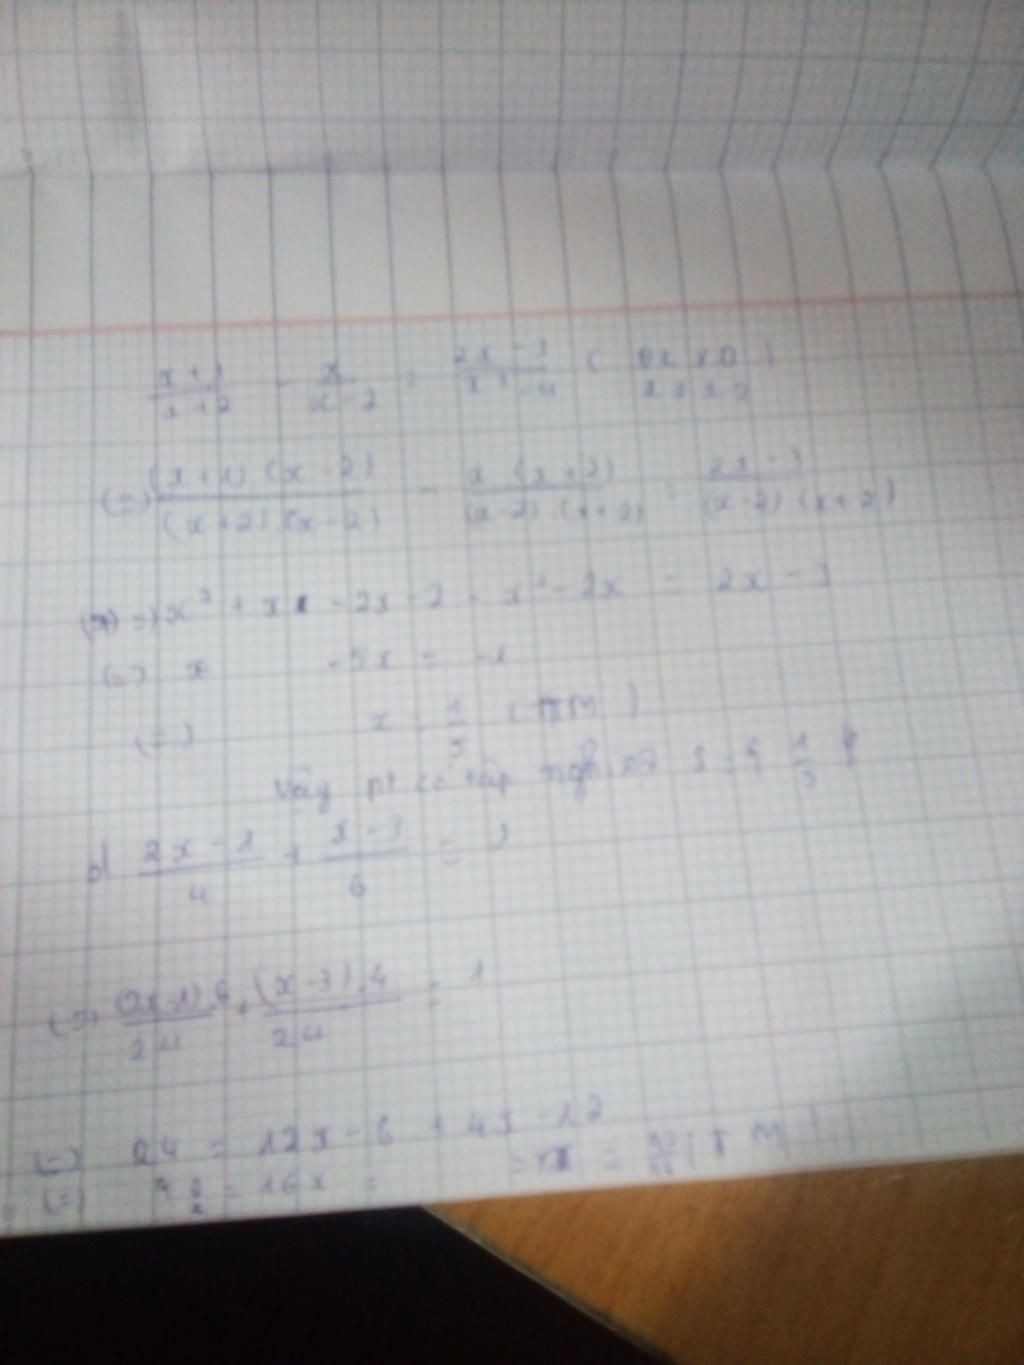 x+1/x+2 - x/x-2 = 2x-3/x²-4 (ĐKXĐ x ≠ ±2)
(=) (x+1).(x-2)/(x+2).(x-2) - x.(x+2)/(x-2).(x+2) = 2x-3/(x-2).(x+2)
=) x² + x - 2x - 2 - x² - 2x = 2x - 3
(=) -5x = -1
(=) x = 1/5 (TM)
Vậy pt có tập nghiệm S = { 1/5 }
b) 2x-1/4 + x-3/6 = 1
(=) (2x-1).6/24 + (x-3).4/24 = 1
(=) 24 = 12x - 6 + 4x - 12
(=) = 16x